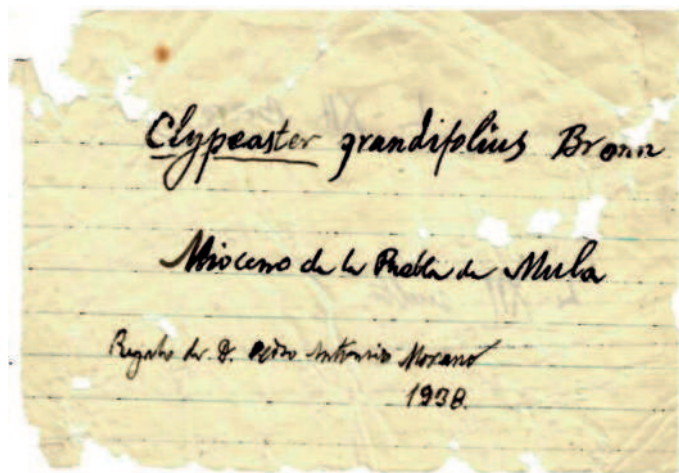 Clypeaster grandifolius Bronn
Mioceno de la Puebla de Mula
Regalo de D. Pedro Antonio Morano
1938.